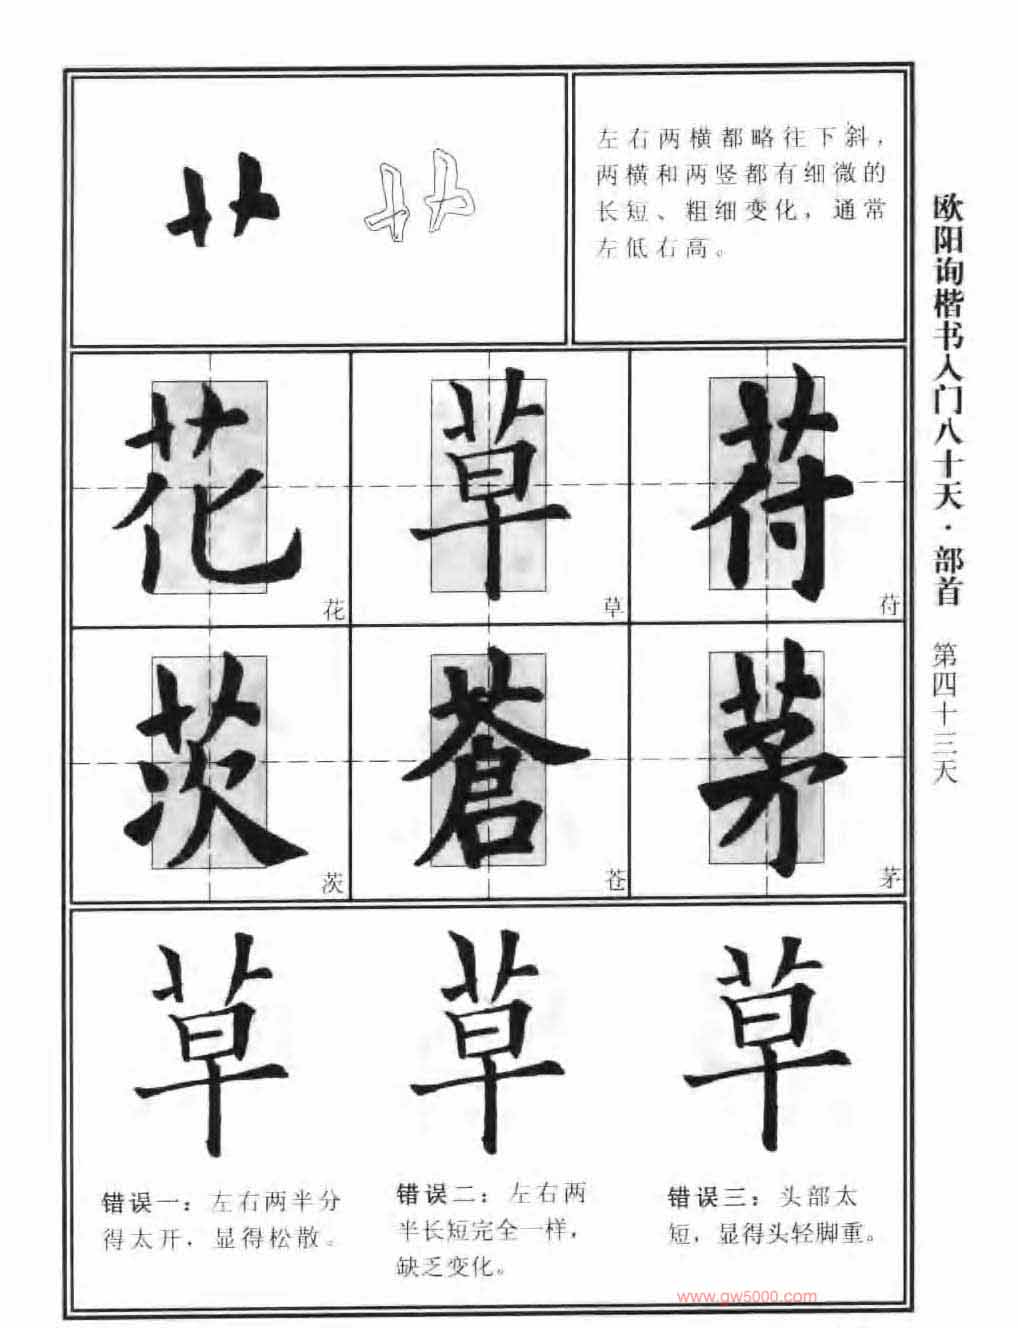 左右两横都略往下斜，
两横和两竖都有细微的
长短、粗细变化，通常
左低右高。
欧阳询楷书入门八十天·部首 第四十三天
花 草 苻
花 草 苻
茨 蒼 茅
茨 苍 茅
草 草 草
错误一：左右两半分
得太开，显得松散。
错误二：左右两
半长短完全一样，
缺乏变化。
错误三：头部太
短，显得头轻脚重。
www.gw5000.com